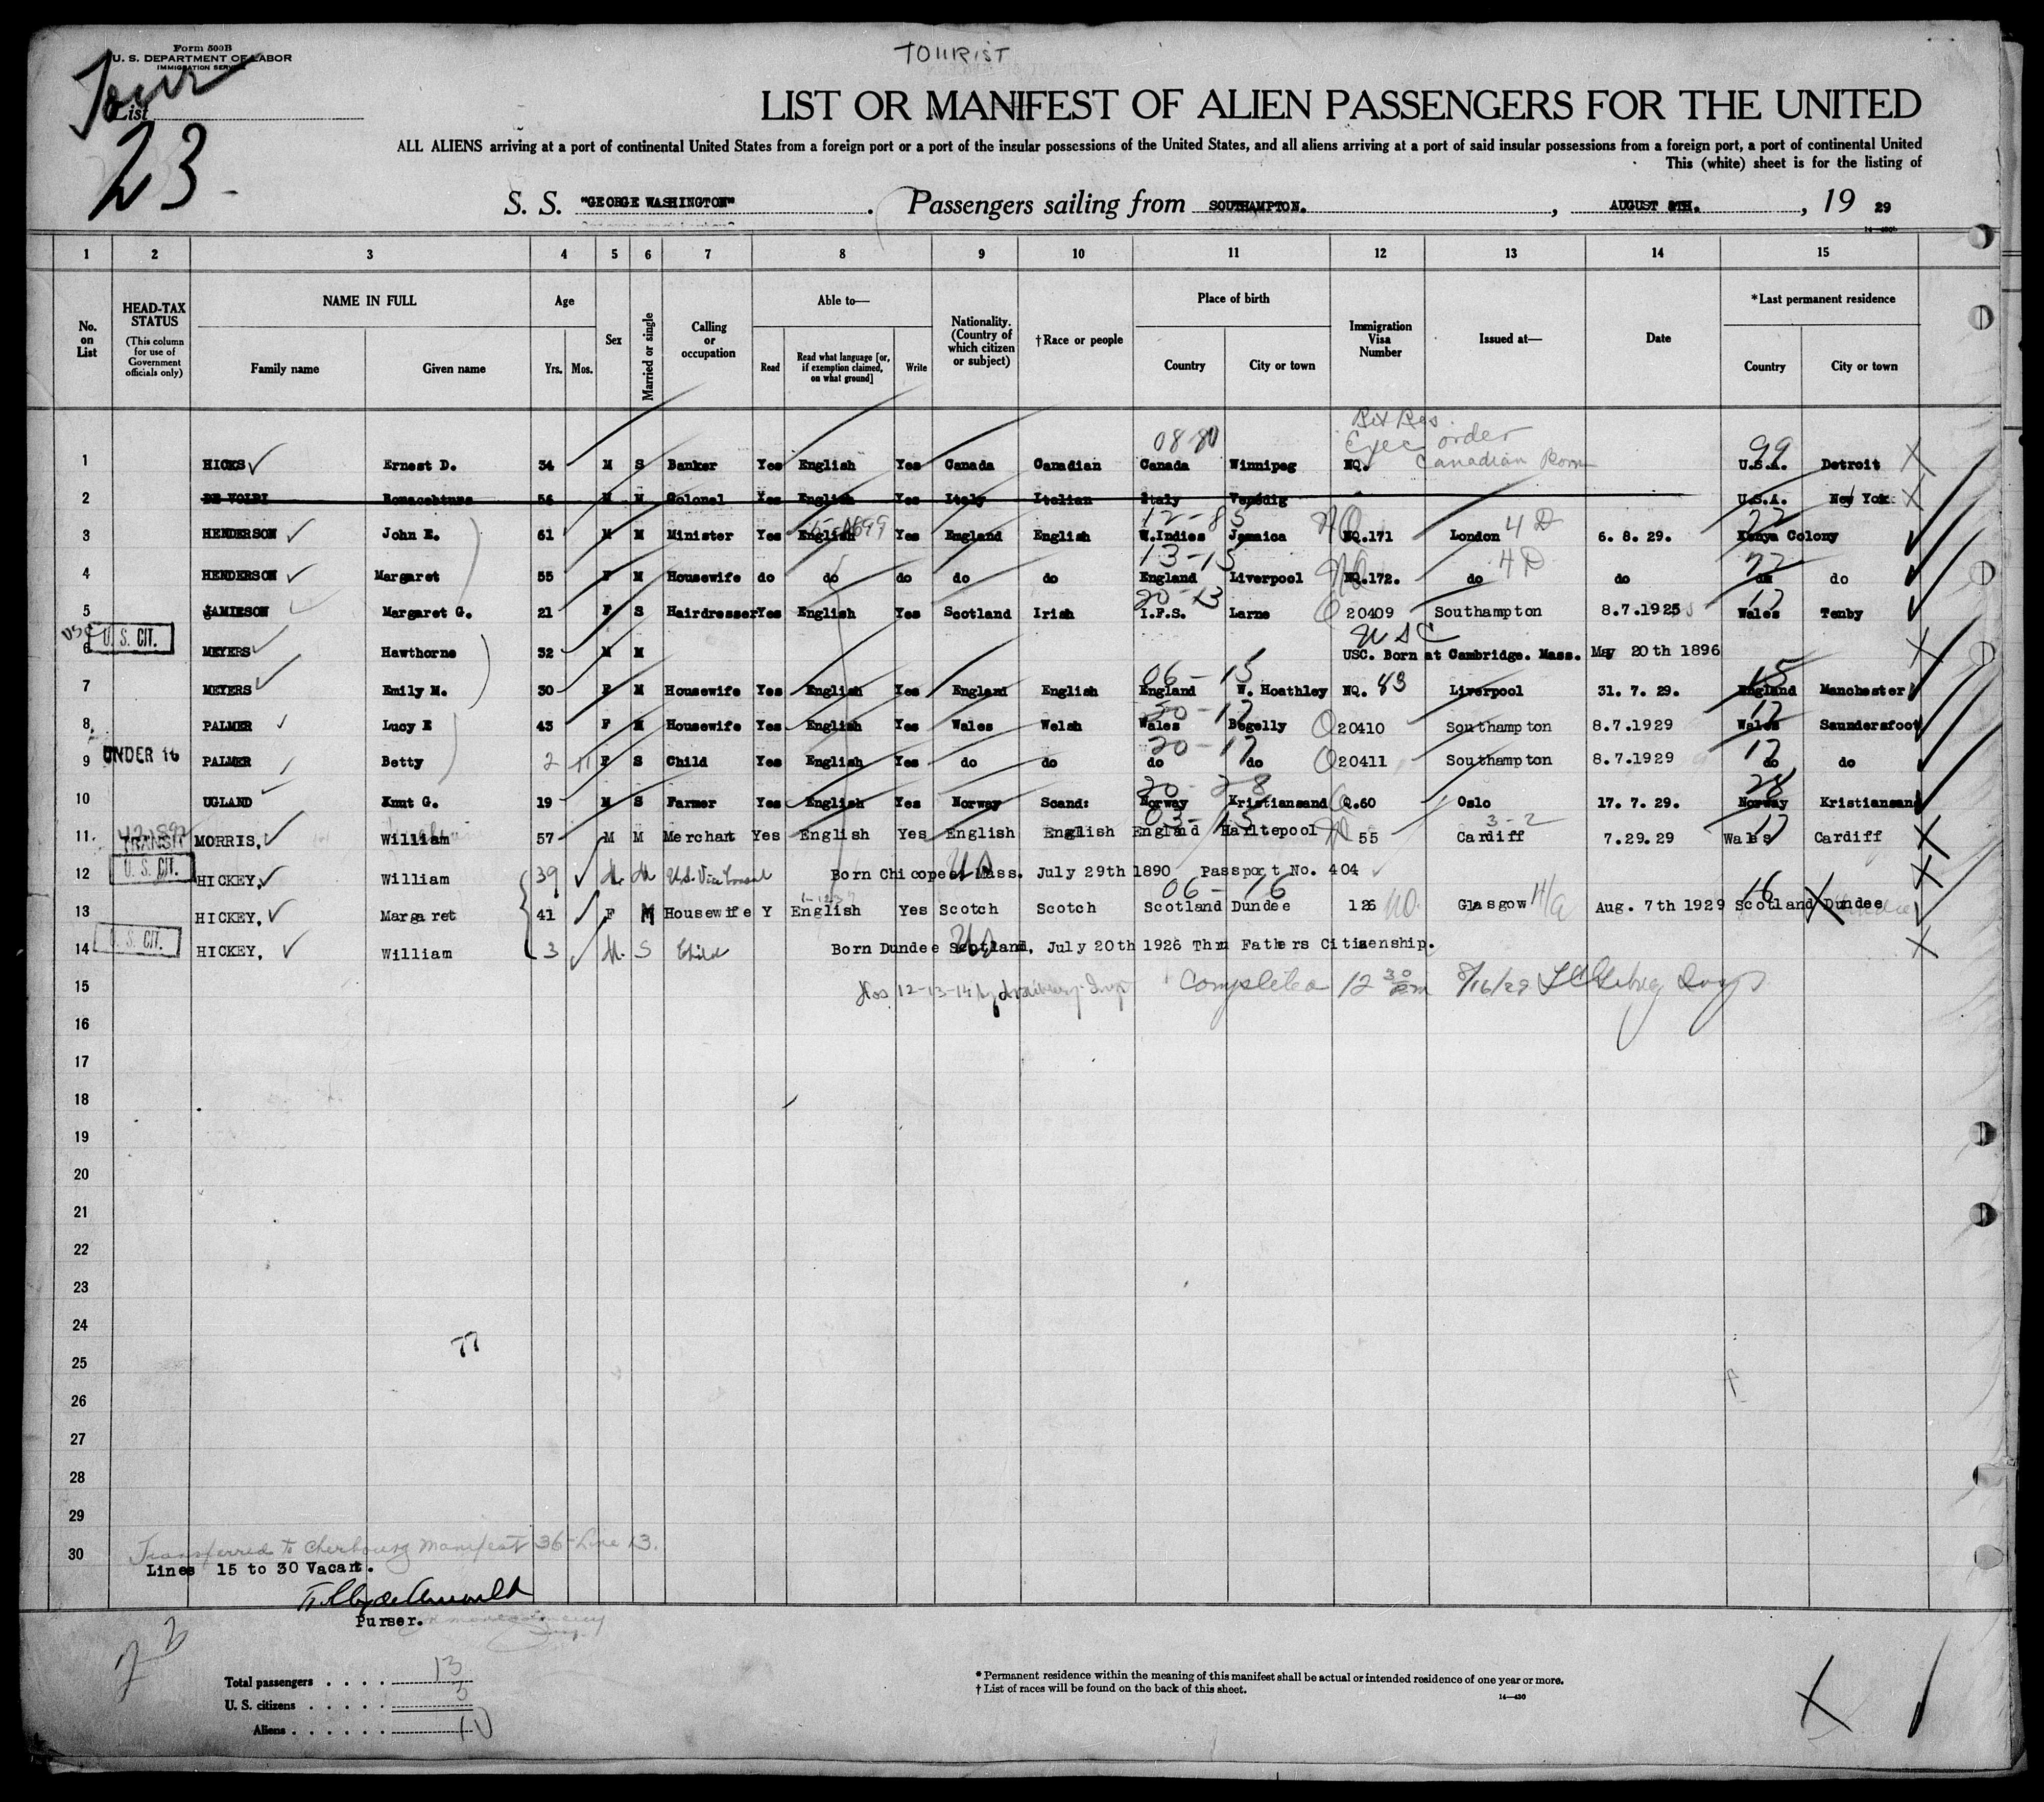 Form 500B
U. S. DEPARTMENT OF LABOR
IMMIGRATION SERVICE
TOURIST
Tour
List
23
LIST OR MANIFEST OF ALIEN PASSENGERS FOR THE UNITED
ALL ALIENS arriving at a port of continental United States from a foreign port or a port of the insular possessions of the United States, and all aliens arriving at a port of said insular possessions from a foreign port, a port of continental United
This (white) sheet is for the listing of
S. S. "GEORGE WASHINGTON". Passengers sailing from SOUTHAMPTON., AUGUST 8TH., 19 29
1 2 3 4 5 6 7 8 9 10 11 12 13 14 15
No. on List
HEAD-TAX STATUS (This column for use of Government officials only)
NAME IN FULL Family name Given name
Age Yrs. Mos.
Sex
Married or single
Calling or occupation
Able to— Read Read what language [or, if exemption claimed, on what ground] Write
Nationality. (Country of which citizen or subject)
†Race or people
Place of birth Country City or town
Immigration Visa Number
Issued at—
Date
*Last permanent residence Country City or town
08 80 Exec order Canadian Born 99
1 HICKS Ernest D. 34 M S Banker Yes English Yes Canada Canadian Canada Winnipeg NQ. U.S.A. Detroit X
2 DE VOLPI 56 M M Colonel Yes English Yes Italy Italian Italy Venedig U.S.A. New Yok X
12-85
3 HENDERSON John E. 61 M M Minister Yes English Yes England English W.Indies Jamaica NQ.171 London 4 D 6. 8. 29. Kenya Colony
13-15
4 HENDERSON Margaret 55 F M Housewife do do do do do England Liverpool NQ.172. do 4D do do do
20-13 17
5 JAMIESON Margaret G. 21 F S Hairdresser Yes English Yes Scotland Irish I.F.S. Larne 20409 Southampton 8.7.1925 Wales Tenby
USC U. S. CIT. USC
6 MEYERS Hawthorne 32 M M USC. Born at Cambridge. Mass. May 20th 1896 X
06-15 15
7 MEYERS Emily M. 30 F M Housewife Yes English Yes England English England W. Hoathley NQ. 83 Liverpool 31. 7. 29. England Manchester
17
8 PALMER Lucy E 43 F M Housewife Yes English Yes Wales Welsh Wales Begelly 20410 Southampton 8.7.1929 Wales Saundersfoot
UNDER 16 20-17 17
9 PALMER Betty 2 11 F S Child Yes English Yes do do do do 20411 Southampton 8.7.1929 do do
20-28 28
10 UGLAND Knut G. 19 M S Farmer Yes English Yes Norway Scand: Norway Kristiansand Q.60 Oslo 17. 7. 29. Norway Kristiansand
TRANSIT 03-15 3-2 17
11 MORRIS. William 57 M M Merchant Yes English Yes English English England Harltepool 55 Cardiff 7.29.29 Wales Cardiff X
U. S. CIT.
12 HICKEY. William 39 M. M U.S. Vice Consul Born Chicopee Mass. July 29th 1890 Passport No. 404 X
06-16 16
13 HICKEY. Margaret 41 F M Housewife Y English Yes Scotch Scotch Scotland Dundee 126 Glasgow Aug. 7th 1929 Scotland Dundee
U. S. CIT.
14 HICKEY. William 3 M. S Child Born Dundee Scotland, July 20th 1926 Thru Fathers Citizenship. X
15 Nos 12-13-14 Completed 12 30 pm 8/16/29
16
17
18
19
20
21
22
23
24
77
25
26
27
28
29
30
Transferred to Cherbourg Manifest 36-Line 13.
Lines 15 to 30 Vacant.
Purser.
Total passengers . . . . 13
U. S. citizens . . . . . 3
Aliens . . . . . . 10
* Permanent residence within the meaning of this manifest shall be actual or intended residence of one year or more.
† List of races will be found on the back of this sheet.
14—430
X